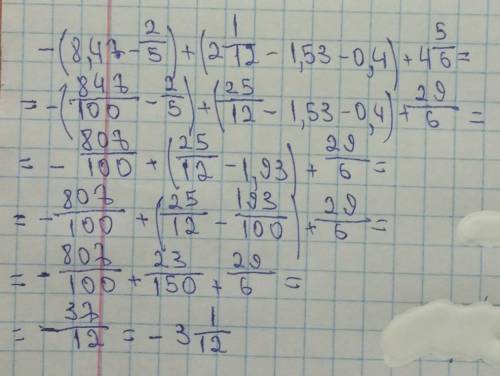 -(8,47 - 2/5) + (2 1/12 - 1,53 - 0,4) + 4 5/6 =
= -(847/100 - 2/5) + (25/12 - 1,53 - 0,4) + 29/6 =
= - 807/100 + (25/12 - 1,93) + 29/6 =
= - 807/100 + (25/12 - 193/100) + 29/6 =
= - 807/100 + 23/150 + 29/6 =
= - 37/12 = - 3 1/12